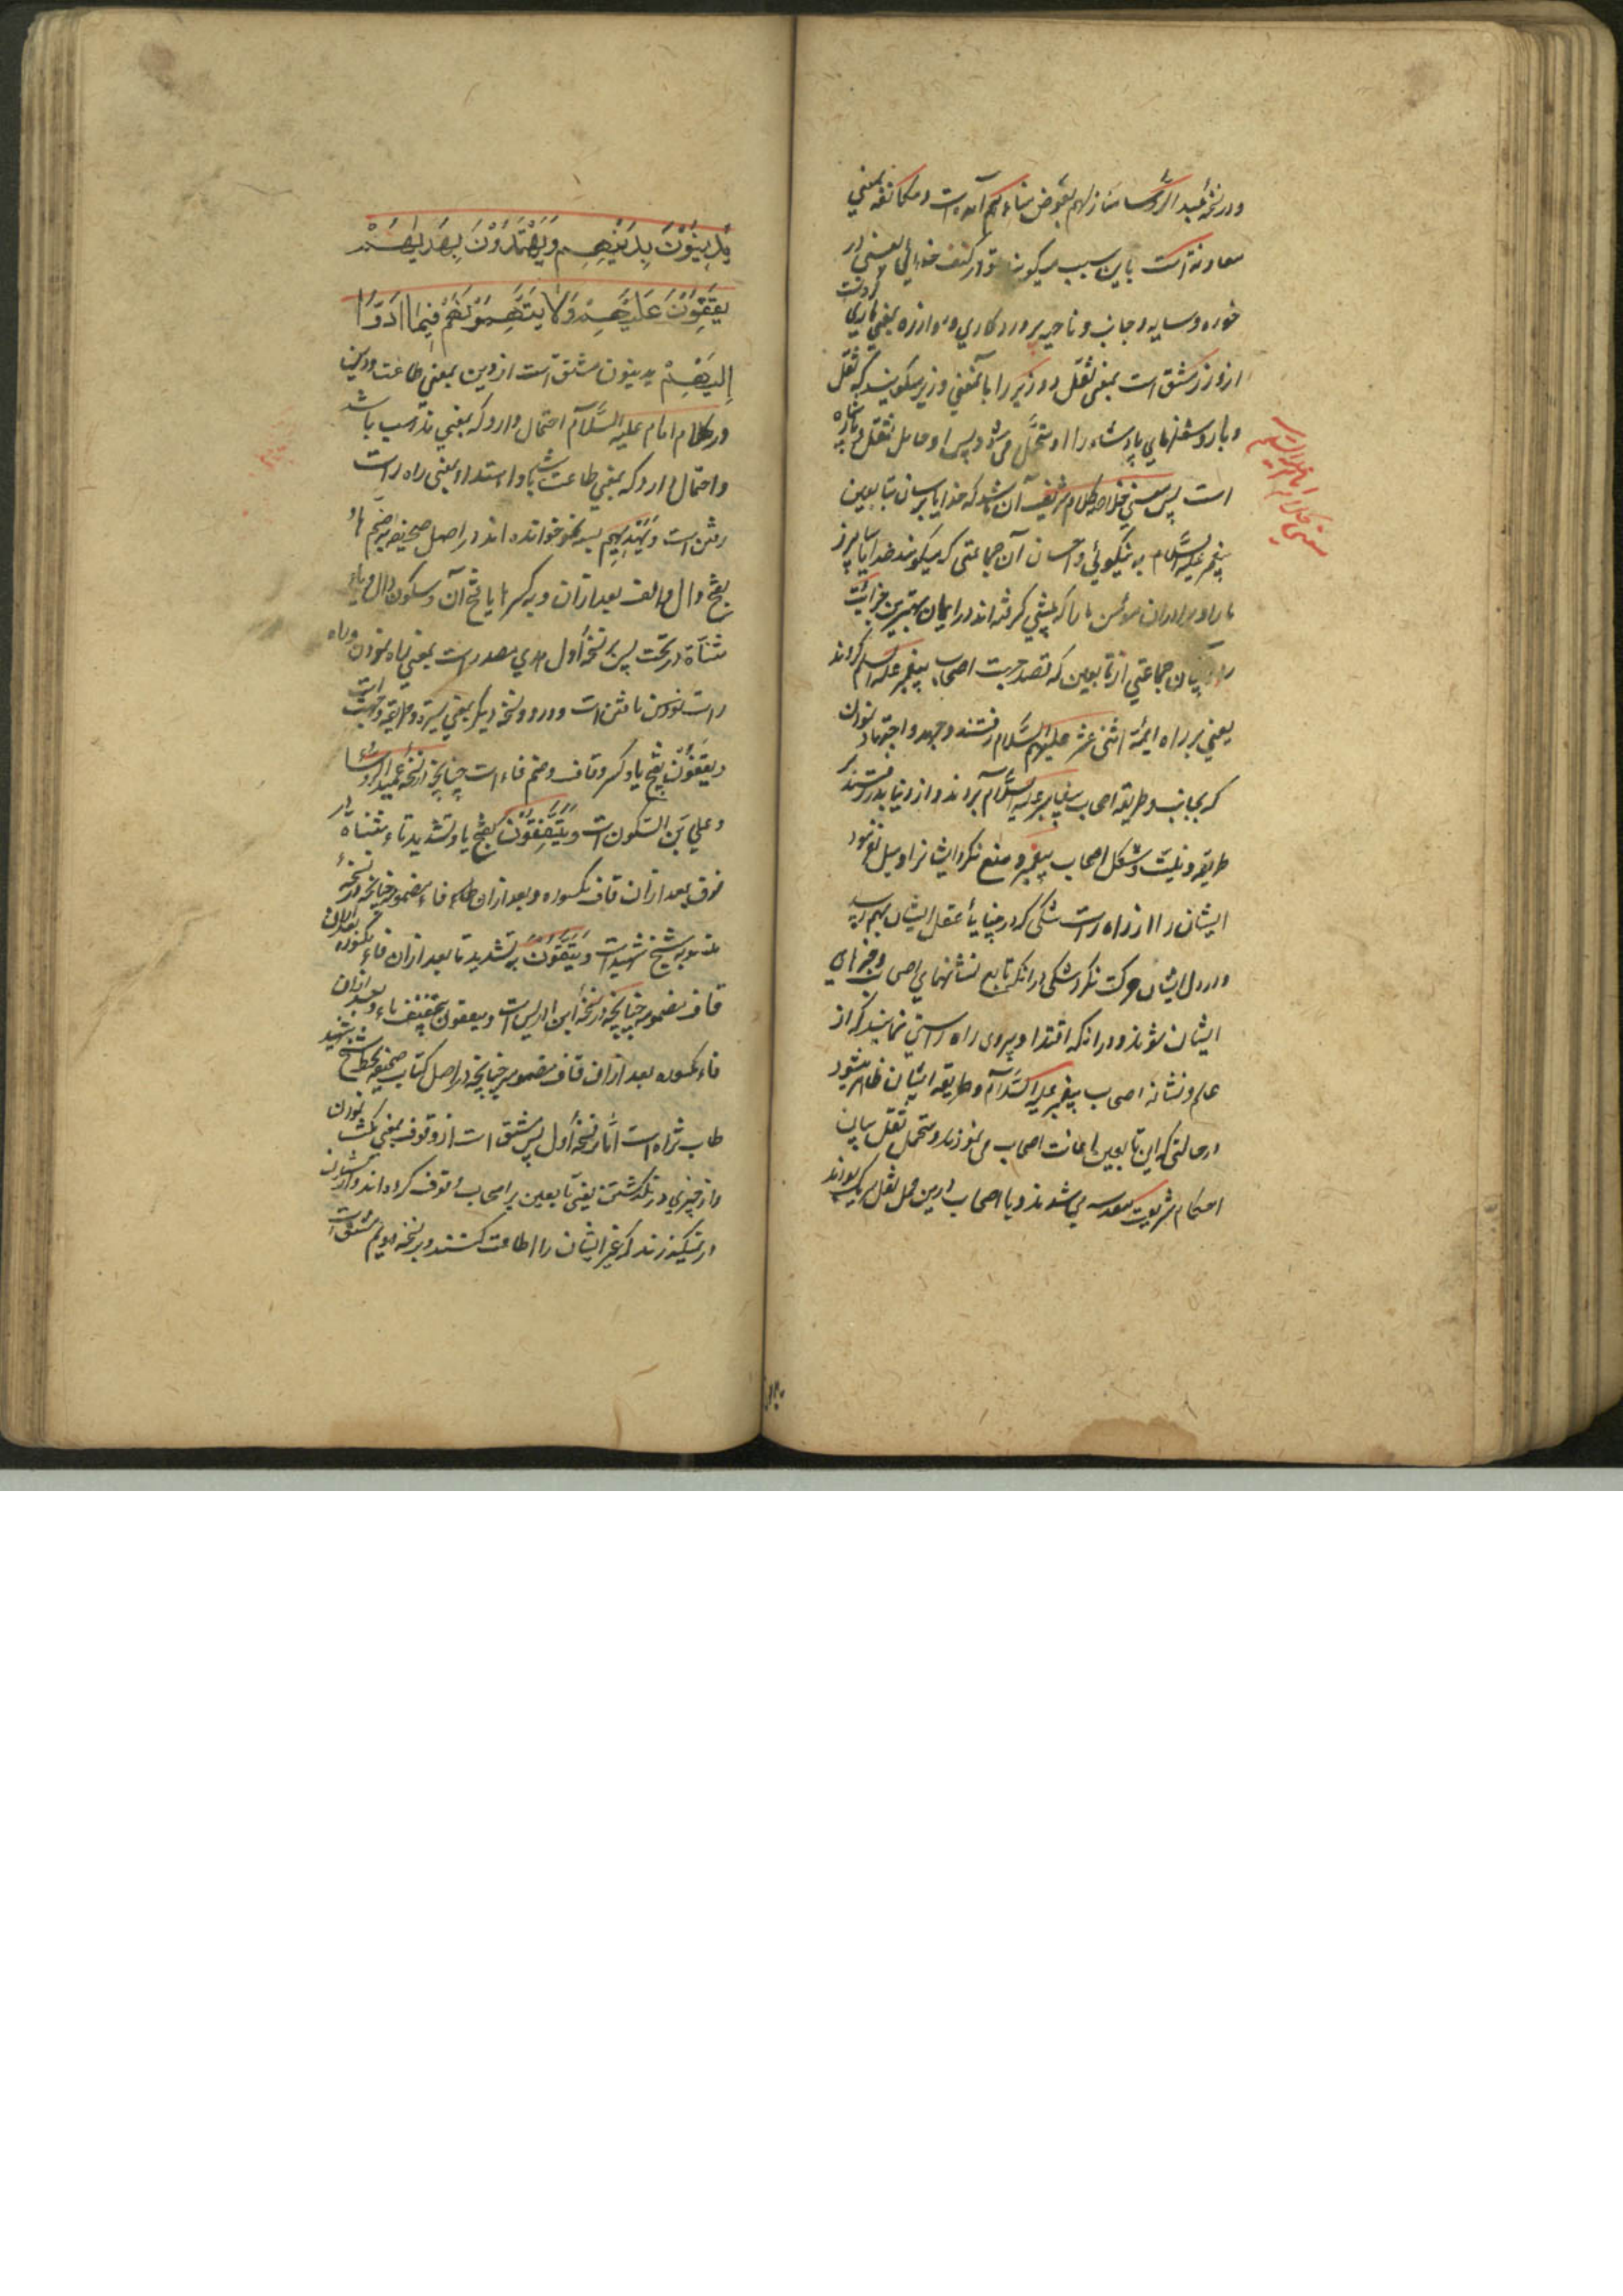 ودر نسخه عمید الرؤسا منازلهم بعوض شاءکم آمده است ومکانفه بمعنی
معاونة است باین سبب میکویند تو در کنف خدائی یعنی در
خوره وسایه وجانب وناحیه پروردکاری وموازره بمعنی یاری کردنست
از وزر مشتق است بمعنی ثقل ووزیر را باآنمعنی وزیر میکویند که ثقل
وبار وشغلهای پادشاه را او متحمل می شود پس او حامل ثقل پادشاه
است پس معنی خلاصه کلام شریف آن باشد که خدایا برسان بتابعین
پیغمبر علیه السلام به نیکوئی واحسان آن جماعتی که میکویند خدایا بیامرز
ما را وبرادران مؤمن ما را که پیشی کرفته اند در ایمان بهترین جزائیت
را آن جماعتی از تابعین که قصد جهت اصحاب پیغمبر علیه السلم کردند
یعنی بر راه ایمه اثنی عشر علیهم السلام رفتند وجهد واجتهاد نمودند
که بجانب وطریقه اصحاب پیغامبر علیه السلام برآند واز دنیا بدر رفتند بر
طریقه ونیت وشکل اصحاب پیغمبر ومنع نکرد ایشانرا ومیل نفرمود
ایشان را از راه راست شکی که در بینایی عقل ایشان بهم رسید
ودر دل ایشان حرکت نکرد شکی در انکه تابع نشانهای اصحاب وخبرهای
ایشان شوند ودر انکه اقتدا وپیروی راه راستی نمایند که از
علم ونشانه اصحاب پیغمبر علیه السلام وطریقه ایشان ظاهر میشود
در حالتی که این تابعین اعانت اصحاب می نمودند ومتحمل ثقل بیان
احکام شریعت مقدسه می شوند وبا اصحاب درین حمل ثقل شریک بودند
معنی کلام امام علیه السلام
یَدِینُونَ بِدِینِهِم وَیَهْتَدُونَ بِهَدْیِهِمْ
یَقِفُونَ عَلَیْهِمْ وَلَا یَتَّهِمُونَهُمْ فِیمَا اَدَّوْا
اِلَیْهِمْ یدینون مشتق است از دین بمعنی اطاعت ودین
در کلام امام علیه السلام احتمال دارد که بمعنی مذهب باشد
واحتمال دارد که بمعنی طاعت باشد واهتداء بمعنی راه راست
رفتن است وبهدیهم بسه نحو خوانده اند در اصل صحیفه بضم هاء
بفتح دال والف بعد از آن وبه کسر ها یا فتح آن وسکون دال ویاء
مثناة در تحت پس بر نسخه أول هدی مصدر است بمعنی راه نمودن وراه
راست نمودن یا فتن است ودر دو نسخه دیکر بمعنی سیرت وطریقه وجهت است
ویقفون بفتح یا وکسر قاف وضم فاء است چنانچه در نسخه عمید الرؤسا
وعلی بن السکون است ویتقفون بفتح یا وتشدید تاء مثناة در
فوق بعد از ان قاف مکسوره وبعد از ان فاء مضموم چنانچه در نسخه
منسوبه بشیخ شهید است ویتفقون به تشدید تا بعد از ان فاء مکسوره بعد از ان
قاف مضموم چنانچه در نسخه ابن ادریس است ویفقون بتخفیف یاء وبعد از ان
فاء مکسوره بعد از ان قاف مضموم چنانچه در اصل کتاب صحیفه بخط شیخ شهید
طاب ثراه است أما بر نسخه أول پس مشتق است از وقوف بمعنی مکث نمودن
واز چیزی در نکذشتن یعنی تابعین بر اصحاب وقوف کرده اند واز ایشان
در نمیکذرند که غیر ایشان را اطاعت کنند وبر نسخه دویم مشتق است